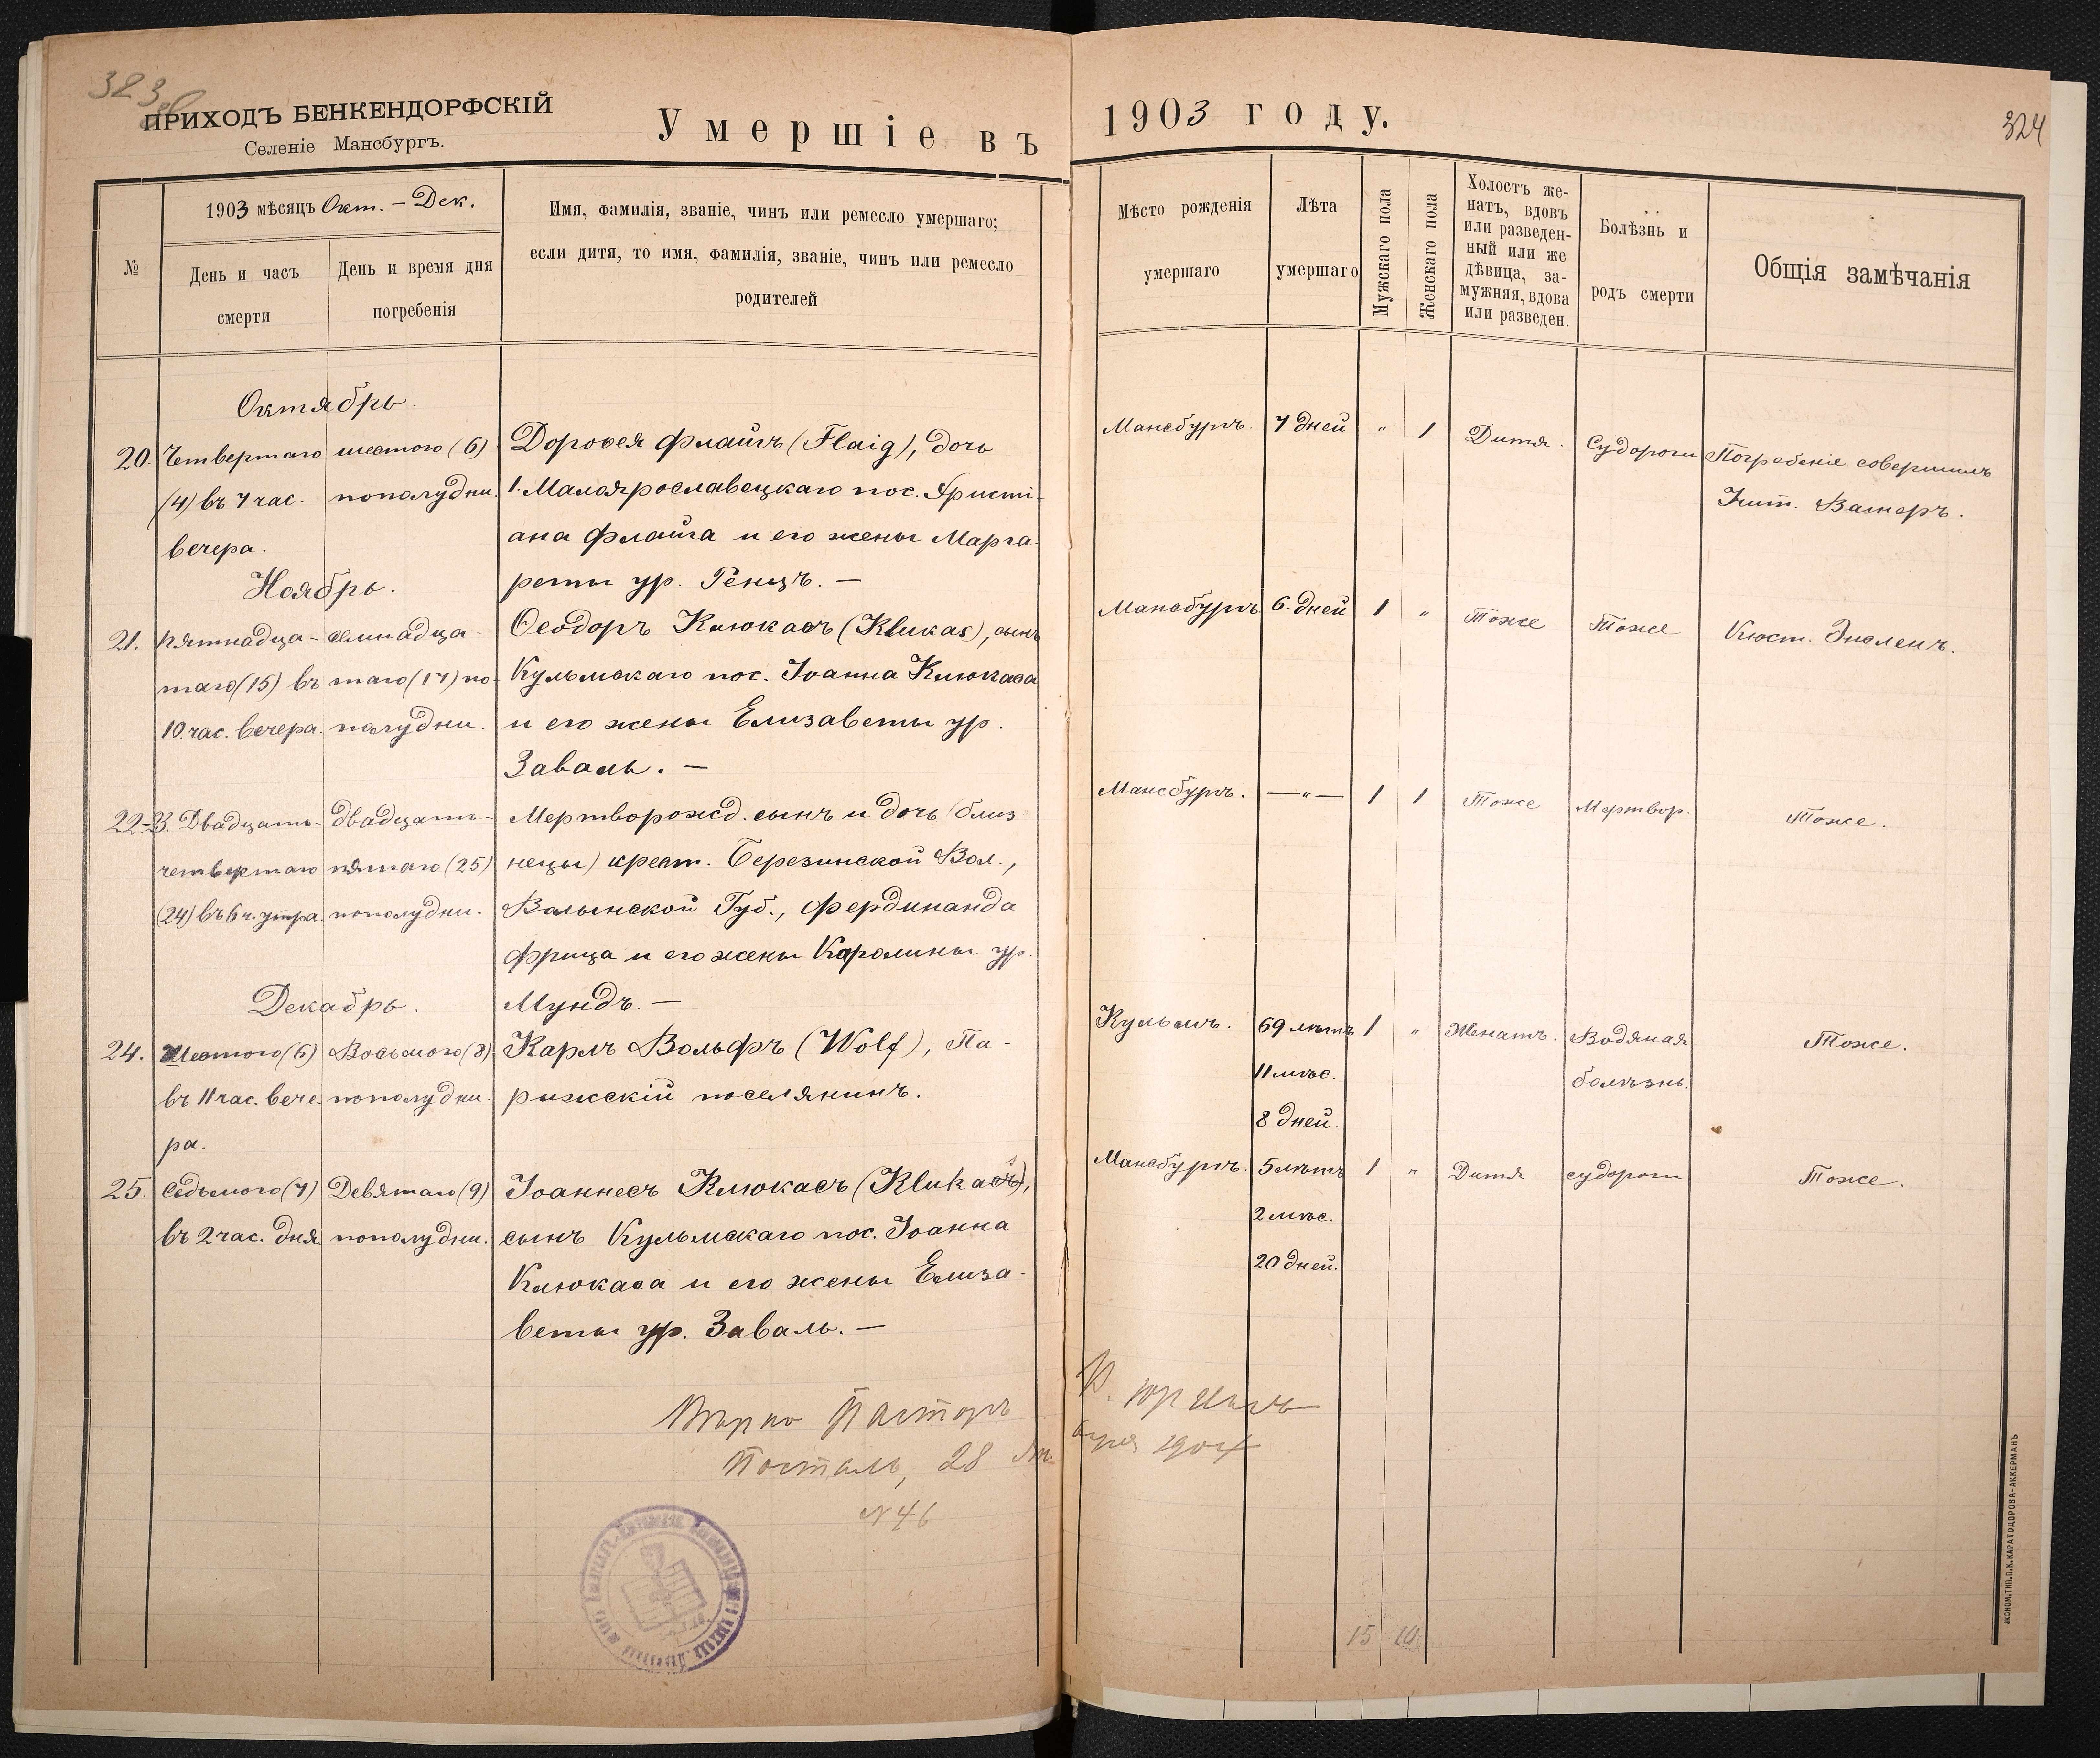 323
ПРИХОДЪ БЕНКЕНДОРФСКІЙ
Селеніе Мансбургъ.
Умершіе въ
1903 году.
324
№
1903 мѣсяцъ Окт. – Дек.
День и часъ
смерти
День и время дня
погребенія
Имя, фамилія, званіе, чинъ или ремесло умершаго;
если дитя, то имя, фамилія, званіе, чинъ или ремесло
родителей
Мѣсто рожденія
умершаго
Лѣта
умершаго
Мужскаго пола
Женскаго пола
Холостъ же-
натъ, вдовъ
или разведен-
ный или же
дѣвица, за-
мужняя, вдова
или разведен.
Болѣзнь и
родъ смерти
Общія замѣчанія
Октябрь.
20.
Четвертаго
(4) въ 7 час.
вечера.
шестого (6)
пополудни.
Доровея Флайгъ (Flaig), дочь
1. Малоярославецкаго пос. Христі-
ана Флайга и его жены Марга-
реты ур. Ренцъ. —
Мансбургъ.
7 дней
"
1
Дитя.
Судороги
Погребеніе совершилъ
Учит. Вагнеръ.
Ноябрь.
21.
Пятнадца-
таго (15) въ
10 час. вечера.
семнадца-
таго (17) по-
полудни.
Ѳеодоръ Клюкасъ (Klukas), сынъ
Кульмскаго пос. Іоанна Клюкаса
и его жены Елизаветы ур.
Заваль. —
Мансбургъ
6. дней
1
"
Тоже
Тоже
Кюст. Энсленъ.
22-3.
Двадцать-
четвертаго
(24) въ 6 ч. утра.
двадцать-
пятаго (25)
пополудни.
Мертворожд. сынъ и дочь (близ-
нецы) крест. Березинской Вол.,
Волынской Губ., Фердинанда
Фрица и его жены Каролины ур.
Мундъ. —
Мансбургъ.
— " —
1
1
Тоже
Мертвор.
Тоже.
Декабрь.
24.
Шестого (6)
въ 11 час. вече-
ра.
Восьмого (8)
пополудни.
Карлъ Вольфъ (Wolf), Па-
рижскій поселянинъ.
Кульмъ.
69 лѣтъ
11 мѣс.
8 дней.
1
"
Женатъ.
Водяная
болѣзнь.
Тоже.
25.
Седьмого (7)
въ 2 час. дня
Девятаго (9)
пополудни.
Іоаннесъ Клюкасъ (Klukas),
сынъ Кульмскаго пос. Іоанна
Клюкаса и его жены Елиза-
веты ур. Заваль. —
Мансбургъ.
5 лѣтъ
2 мѣс.
20 дней.
1
"
Дитя
судороги
Тоже.
Вѣрно Пасторъ
Постталь, 28 Ян
варя 1904
№ 46
15 10
ЭКОНОМ.ТИП.П.К.КАРАТОДОРОВА-АККЕРМАНЪ